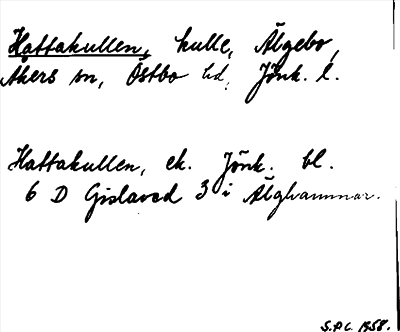 Hattakullen, kulle, Älgebo,
Åkers sn, Östbo hd, Jönk. l.
Hattakullen, ek. Jönk. bl.
6 D Gislaved 3 i Älghammar.
S.P.C. 1958.